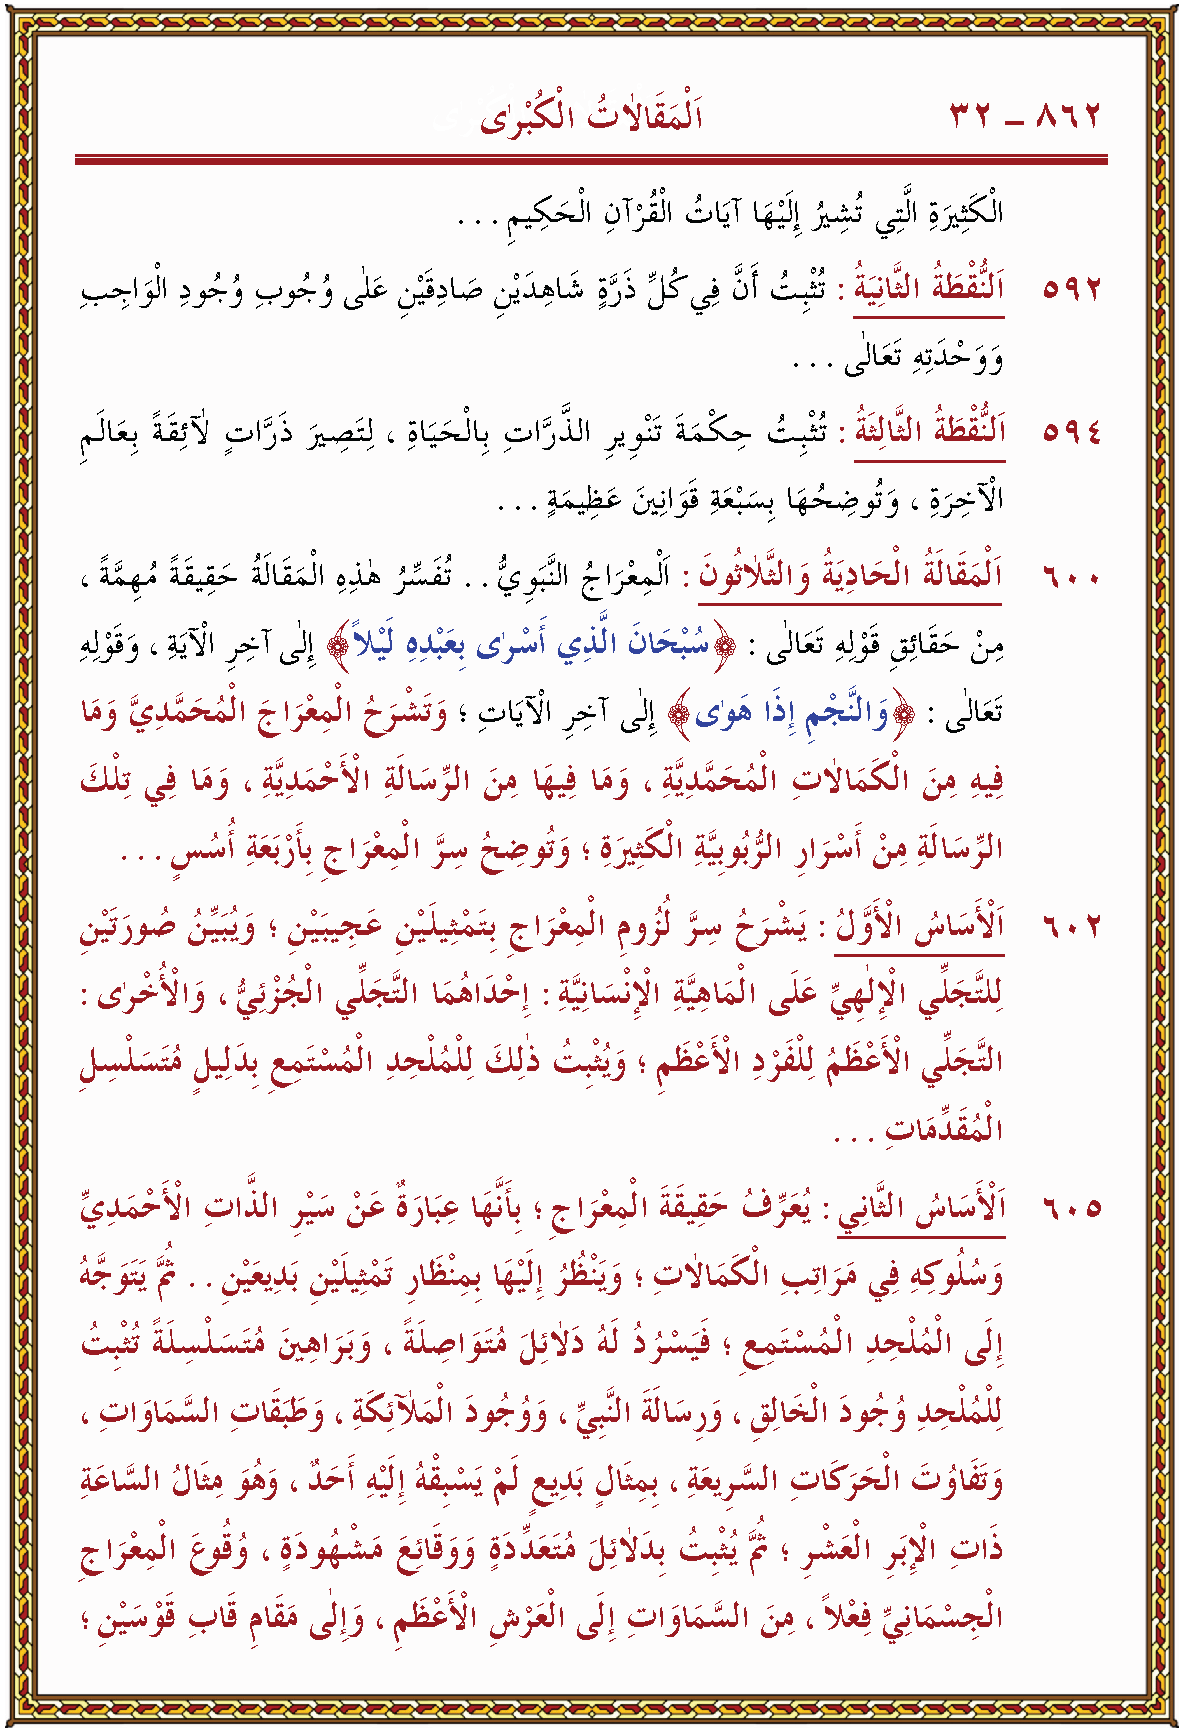 ٨٦٢ – ٣٢ اَلْمَقَالَاتُ الْكُبْرٰى
الْكَثِيرَةِ الَّتِي تُشِيرُ إِلَيْهَا آيَاتُ الْقُرْآنِ الْحَكِيمِ . . .
٥٩٢ اَلنُّقْطَةُ الثَّانِيَةُ : تُثْبِتُ أَنَّ فِي كُلِّ ذَرَّةٍ شَاهِدَيْنِ صَادِقَيْنِ عَلٰى وُجُوبِ وُجُودِ الْوَاجِبِ
وَوَحْدَتِهِ تَعَالٰى . . .
٥٩٤ اَلنُّقْطَةُ الثَّالِثَةُ : تُثْبِتُ حِكْمَةَ تَنْوِيرِ الذَّرَّاتِ بِالْحَيَاةِ ، لِتَصِيرَ ذَرَّاتٍ لَآئِقَةً بِعَالَمِ
الْآخِرَةِ ، وَتُوضِحُهَا بِسَبْعَةِ قَوَانِينَ عَظِيمَةٍ . . .
٦٠٠ اَلْمَقَالَةُ الْحَادِيَةُ وَالثَّلَاثُونَ : اَلْمِعْرَاجُ النَّبَوِيُّ . . تُفَسِّرُ هٰذِهِ الْمَقَالَةُ حَقِيقَةً مُهِمَّةً ،
مِنْ حَقَائِقِ قَوْلِهِ تَعَالٰى : ﴿سُبْحَانَ الَّذِي أَسْرٰى بِعَبْدِهِ لَيْلًا﴾ إِلٰى آخِرِ الْآيَةِ ، وَقَوْلِهِ
تَعَالٰى : ﴿وَالنَّجْمِ إِذَا هَوٰى﴾ إِلٰى آخِرِ الْآيَاتِ ؛ وَتَشْرَحُ الْمِعْرَاجَ الْمُحَمَّدِيَّ وَمَا
فِيهِ مِنَ الْكَمَالَاتِ الْمُحَمَّدِيَّةِ ، وَمَا فِيهَا مِنَ الرِّسَالَةِ الْأَحْمَدِيَّةِ ، وَمَا فِي تِلْكَ
الرِّسَالَةِ مِنْ أَسْرَارِ الرُّبُوبِيَّةِ الْكَثِيرَةِ ؛ وَتُوضِحُ سِرَّ الْمِعْرَاجِ بِأَرْبَعَةِ أُسُسٍ . . .
٦٠٢ اَلْأَسَاسُ الْأَوَّلُ : يَشْرَحُ سِرَّ لُزُومِ الْمِعْرَاجِ بِتَمْثِيلَيْنِ عَجِيبَيْنِ ؛ وَيُبَيِّنُ صُورَتَيْنِ
لِلتَّجَلِّي الْإِلٰهِيِّ عَلَى الْمَاهِيَّةِ الْإِنْسَانِيَّةِ : إِحْدَاهُمَا التَّجَلِّي الْجُزْئِيُّ ، وَالْأُخْرٰى :
التَّجَلِّي الْأَعْظَمُ لِلْفَرْدِ الْأَعْظَمِ ؛ وَيُثْبِتُ ذٰلِكَ لِلْمُلْحِدِ الْمُسْتَمِعِ بِدَلِيلٍ مُتَسَلْسِلِ
الْمُقَدِّمَاتِ . . .
٦٠٥ اَلْأَسَاسُ الثَّانِي : يُعَرِّفُ حَقِيقَةَ الْمِعْرَاجِ ؛ بِأَنَّهَا عِبَارَةٌ عَنْ سَيْرِ الذَّاتِ الْأَحْمَدِيِّ
وَسُلُوكِهِ فِي مَرَاتِبِ الْكَمَالَاتِ ؛ وَيَنْظُرُ إِلَيْهَا بِمِنْظَارِ تَمْثِيلَيْنِ بَدِيعَيْنِ . . ثُمَّ يَتَوَجَّهُ
إِلَى الْمُلْحِدِ الْمُسْتَمِعِ ؛ فَيَسْرُدُ لَهُ دَلَائِلَ مُتَوَاصِلَةً ، وَبَرَاهِينَ مُتَسَلْسِلَةً تُثْبِتُ
لِلْمُلْحِدِ وُجُودَ الْخَالِقِ ، وَرِسَالَةَ النَّبِيِّ ، وَوُجُودَ الْمَلَآئِكَةِ ، وَطَبَقَاتِ السَّمَاوَاتِ ،
وَتَفَاوُتَ الْحَرَكَاتِ السَّرِيعَةِ ، بِمِثَالٍ بَدِيعٍ لَمْ يَسْبِقْهُ إِلَيْهِ أَحَدٌ ، وَهُوَ مِثَالُ السَّاعَةِ
ذَاتِ الْإِبَرِ الْعَشْرِ ؛ ثُمَّ يُثْبِتُ بِدَلَائِلَ مُتَعَدِّدَةٍ وَوَقَائِعَ مَشْهُودَةٍ ، وُقُوعَ الْمِعْرَاجِ
الْجِسْمَانِيِّ فِعْلًا ، مِنَ السَّمَاوَاتِ إِلَى الْعَرْشِ الْأَعْظَمِ ، وَإِلٰى مَقَامِ قَابِ قَوْسَيْنِ ؛